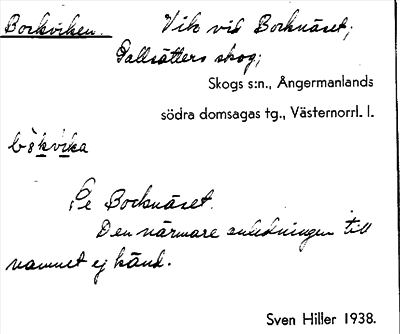 Bockviken. Vik vid Bocknäset;
Pallsätters skog;
Skogs s:n., Ångermanlands
södra domsagas tg., Västernorrl. l.
bòkvika
Se Bocknäset.
Den närmare anledningen till
namnet ej känd.
Sven Hiller 1938.